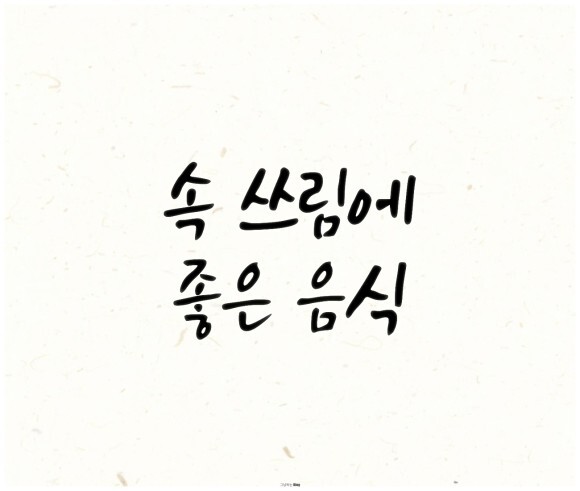 속 쓰림에
좋은 음식